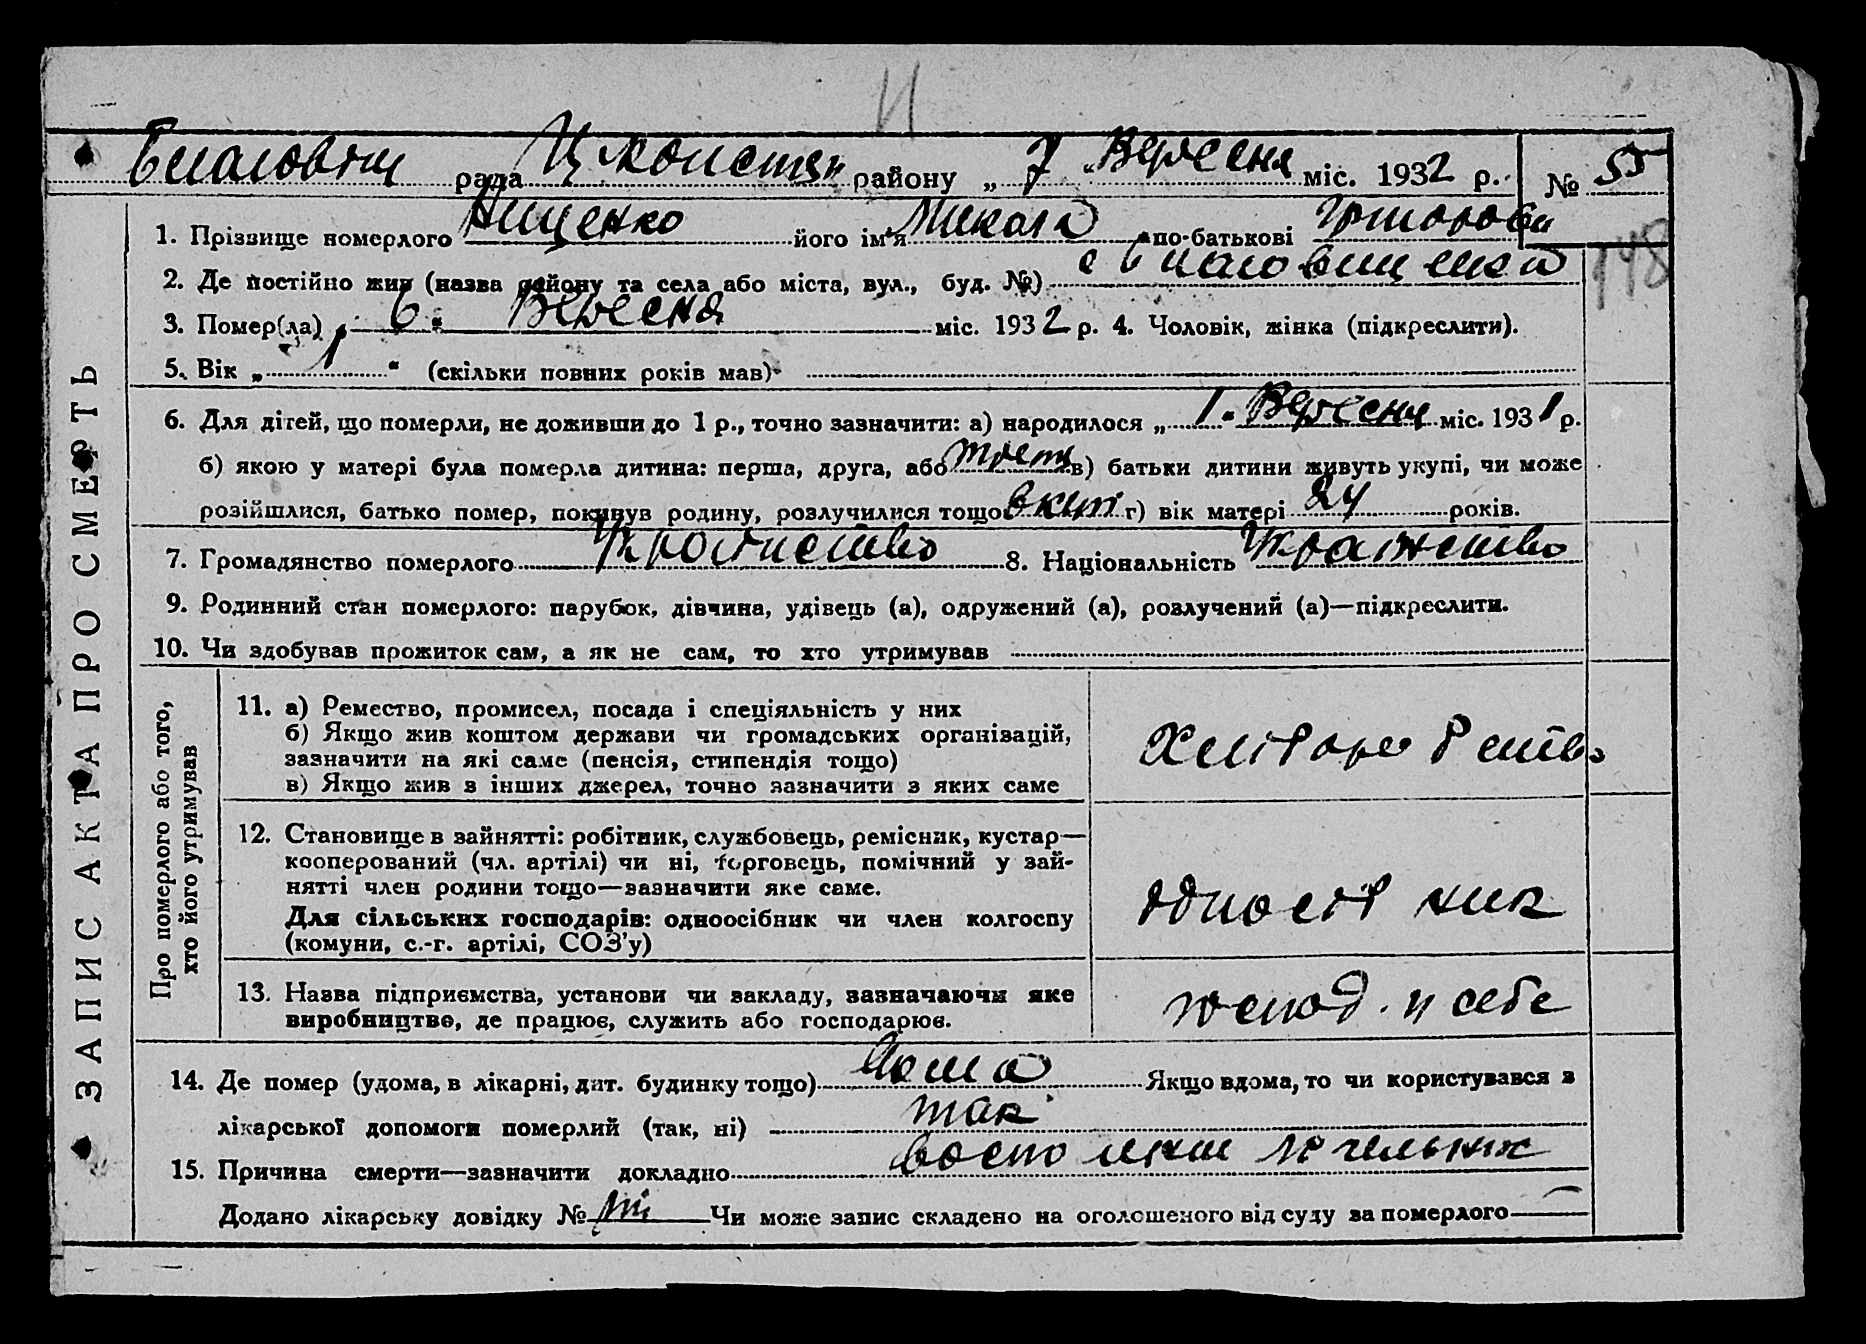 рада району „ 7 “ Вересня міс. 1932 р. № 55
1. Прізвище номерлого Нищенко його ім'я Микола по-батькові
148
2. Де постійно жив (назва району та села або міста, вул., буд. №) с
3. Помер(ла) „ 6 “ Вересня міс. 1932 р. 4. Чоловік, жінка (підкреслити).
5. Вік „ 1 “ (скільки повних років мав)
6. Для дітей, що померли, не доживши до 1 р., точно зазначити: а) народилося „ 1 “ Вересня міс. 1931 р.
б) якою у матері була померла дитина: перша, друга, або в) батьки дитини живуть укупі, чи може
розійшлися, батько помер, покинув родину, розлучилися тощо г) вік матері 24 років.
7. Громадянство померлого 8. Національність
9. Родинний стан померлого: парубок, дівчина, удівець (а), одружений (а), розлучений (а)—підкреслити.
10. Чи здобував прожиток сам, а як не сам, то хто утримував
ЗАПИС АКТА ПРО СМЕРТЬ
Про померлого або того, хто його утримував
11. а) Ремество, промисел, посада і спеціяльність у них
б) Якщо жив коштом держави чи громадських організацій,
зазначити на які саме (пенсія, стипендія тощо)
в) Якщо жив з інших джерел, точно зазначити з яких саме
12. Становище в зайнятті: робітник, службовець, ремісник, кустар—
кооперований (чл. артілі) чи ні, торговець, помічний у зай-
нятті член родини тощо—зазначити яке саме.
Для сільських господарів: одноосібник чи член колгоспу
(комуни, с.-г. артілі, СОЗ'у)
13. Назва підприємства, установи чи закладу, зазначаючи яке
виробництво, де працює, служить або господарює.
господ. у себе
14. Де помер (удома, в лікарні, дит. будинку тощо) дома Якщо вдома, то чи користувався з
лікарської допомоги померлий (так, ні) так
15. Причина смерти—зазначити докладно
Додано лікарську довідку № ні Чи може запис складено на оголошеного від суду за померлого —